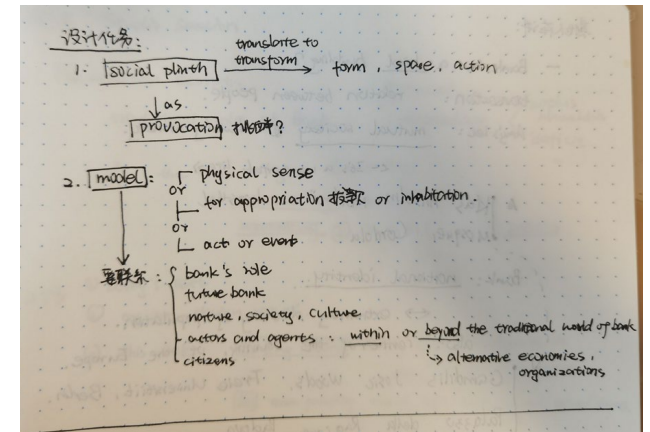 设计任务:
1. social plinth translate to transform form, space, action
as
provocation 挑衅?
2. model: physical sense
or
for appropriation 拨款 or inhabitation.
or
act or event
要联系: bank's role
future bank
nature, society, culture
actors and agents: within or beyond the traditional world of bank
citizens alternative economies,
organizations